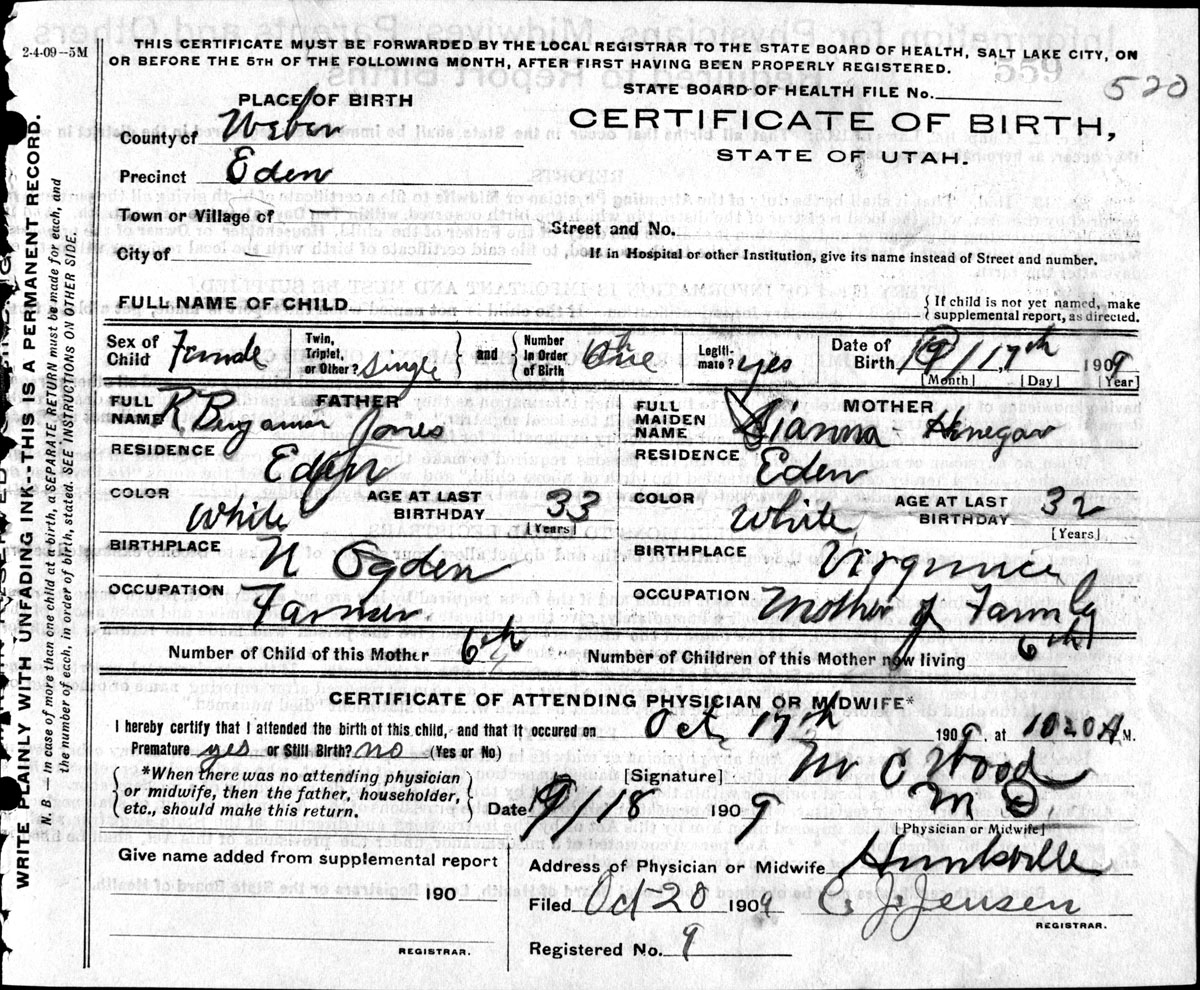 2-4-09-5M
THIS CERTIFICATE MUST BE FORWARDED BY THE LOCAL REGISTRAR TO THE STATE BOARD OF HEALTH, SALT LAKE CITY, ON
OR BEFORE THE 5TH OF THE FOLLOWING MONTH, AFTER FIRST HAVING BEEN PROPERLY REGISTERED.
559
STATE BOARD OF HEALTH FILE No. 520
PLACE OF BIRTH
CERTIFICATE OF BIRTH,
STATE OF UTAH.
County of Weber
Precinct Eden
Town or Village of
Street and No.
City of
If in Hospital or other Institution, give its name instead of Street and number.
FULL NAME OF CHILD
{If child is not yet named, make supplemental report, as directed.
Sex of Child Female Twin, Triplet, or Other? Single } and { Number in Order of Birth One Legitimate? yes Date of Birth 17th 1909
[Month] [Day] [Year]
FULL NAME FATHER R Benjamin Jones
FULL MAIDEN NAME MOTHER
RESIDENCE Eden
RESIDENCE Eden
COLOR White AGE AT LAST BIRTHDAY 33 [Years]
COLOR White AGE AT LAST BIRTHDAY 32 [Years]
BIRTHPLACE N Ogden
BIRTHPLACE
OCCUPATION Farmer
OCCUPATION Mother of Family
Number of Child of this Mother 6th Number of Children of this Mother now living 6th
CERTIFICATE OF ATTENDING PHYSICIAN OR MIDWIFE*
I hereby certify that I attended the birth of this child, and that it occured on Oct 17th 1909, at 1020 A M.
Premature yes or Still Birth? no (Yes or No)
*When there was no attending physician or midwife, then the father, householder, etc., should make this return.
[Signature] Wood
M D
Date 18 1909
[Physician or Midwife]
Give name added from supplemental report
190
REGISTRAR.
Address of Physician or Midwife Huntsville
Filed Oct-20 1909 C. J. Jensen
REGISTRAR.
Registered No. 9
WRITE PLAINLY WITH UNFADING INK--THIS IS A PERMANENT RECORD.
N. B. — In case of more than one child at a birth, a SEPARATE RETURN must be made for each, and
the number of each, in order of birth, stated. SEE INSTRUCTIONS ON OTHER SIDE.